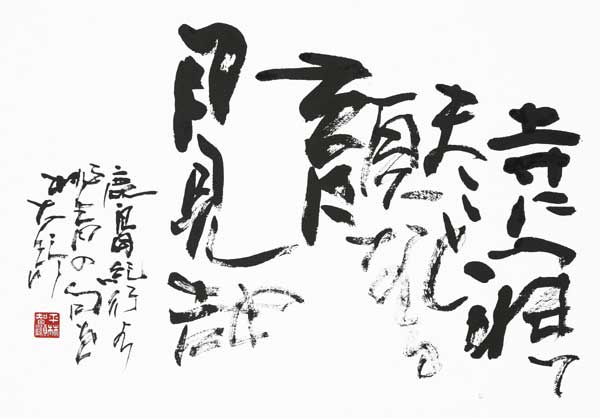 寺に寝て
まこと
顔なる
月見哉
鹿島紀行より
芭蕉の句